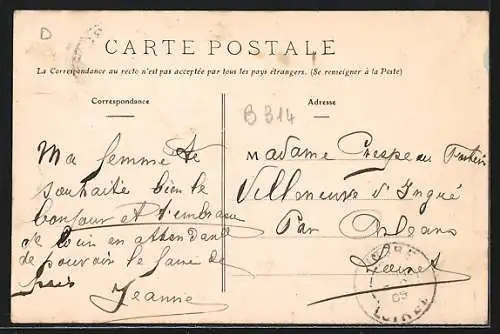 D
CARTE POSTALE
La Correspondance au recto n'est pas acceptée par tous les pays étrangers. (Se renseigner à la Poste)
Correspondance
Ma femme te
souhaite bien le
bonjour et t'embrasse
de loin en attendant
de pouvoir le faire de
Jeanne
B 314
Adresse
Madame Crespeau
Villeneuve d'Ingré
Par Orléans
Loiret